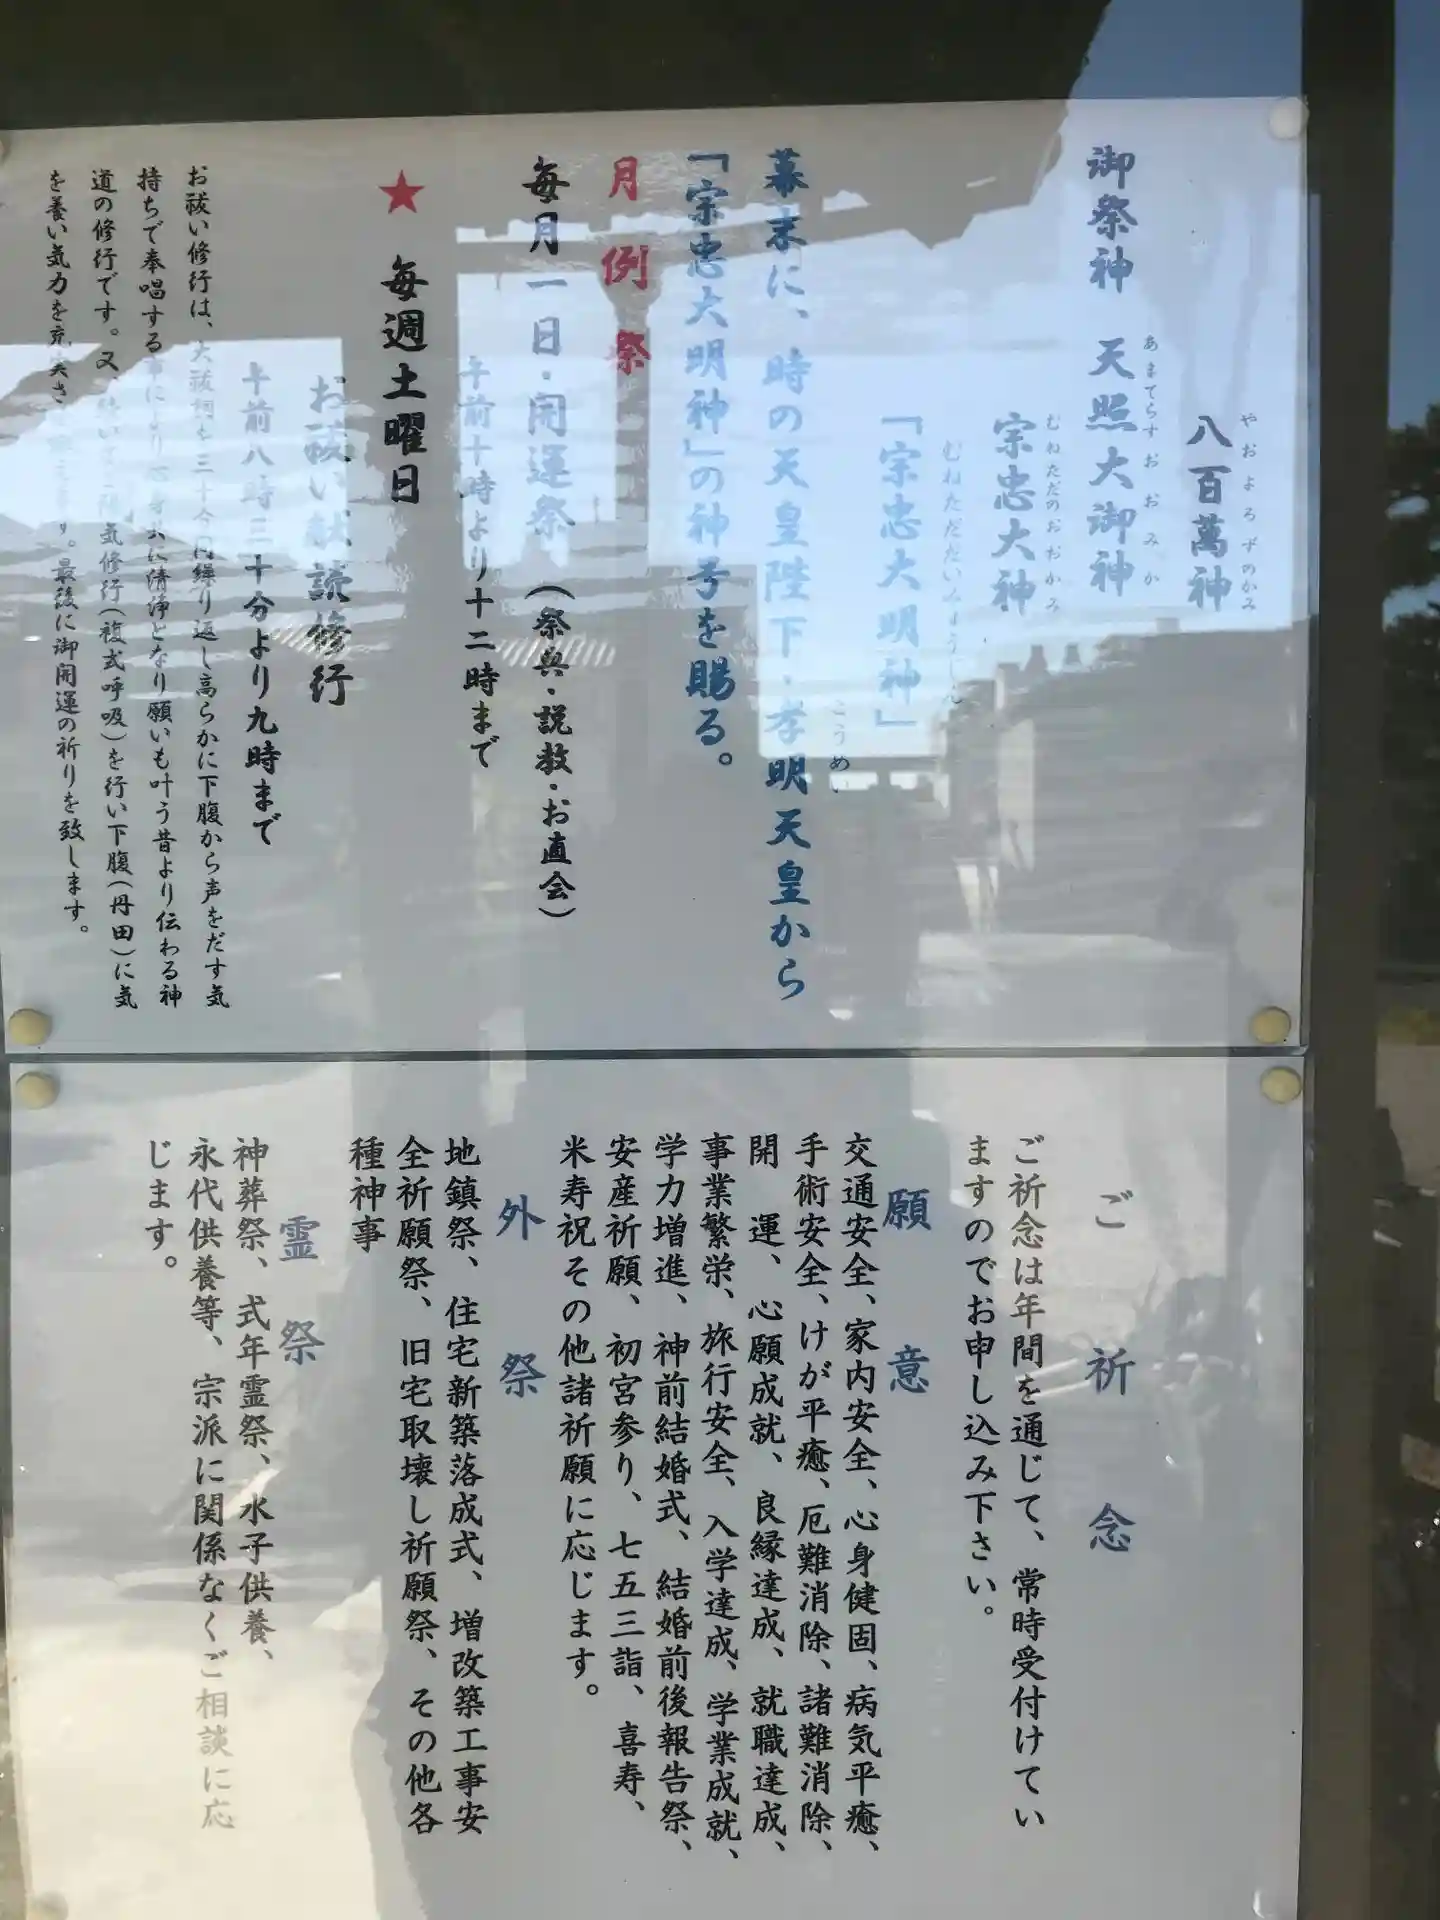 やおよろずのかみ
八百萬神
あまてらすおおみか
御祭神　天照大御神
むねただのおおかみ
宗忠大神
むねただだいみょうじん
「宗忠大明神」
こうめい
幕末に、時の天皇陛下・孝明天皇から
「宗忠大明神」の神号を賜る。
月例祭
毎月一日・開運祭　（祭典・説教・お直会）
午前十時より十二時まで
★　毎週土曜日
お祓い献読修行
午前八時三十分より九時まで
お祓い修行は、大祓詞を三十分間繰り返し高らかに下腹から声をだす気
持ちで奉唱する事により心身共に清浄となり願いも叶う昔より伝わる神
道の修行です。又、気修行（複式呼吸）を行い下腹（丹田）に気
を養い気力を充実さ。最後に御開運の祈りを致します。
ご祈念
ご祈念は年間を通じて、常時受付けてい
ますのでお申し込み下さい。
願意
交通安全、家内安全、心身健固、病気平癒、
手術安全、けが平癒、厄難消除、諸難消除、
開　運、心願成就、良縁達成、就職達成、
事業繁栄、旅行安全、入学達成、学業成就、
学力増進、神前結婚式、結婚前後報告祭、
安産祈願、初宮参り、七五三詣、喜寿、
米寿祝その他諸祈願に応じます。
外祭
地鎮祭、住宅新築落成式、増改築工事安
全祈願祭、旧宅取壊し祈願祭、その他各
種神事
霊祭
神葬祭、式年霊祭、水子供養、
永代供養等、宗派に関係なくご相談に応
じます。